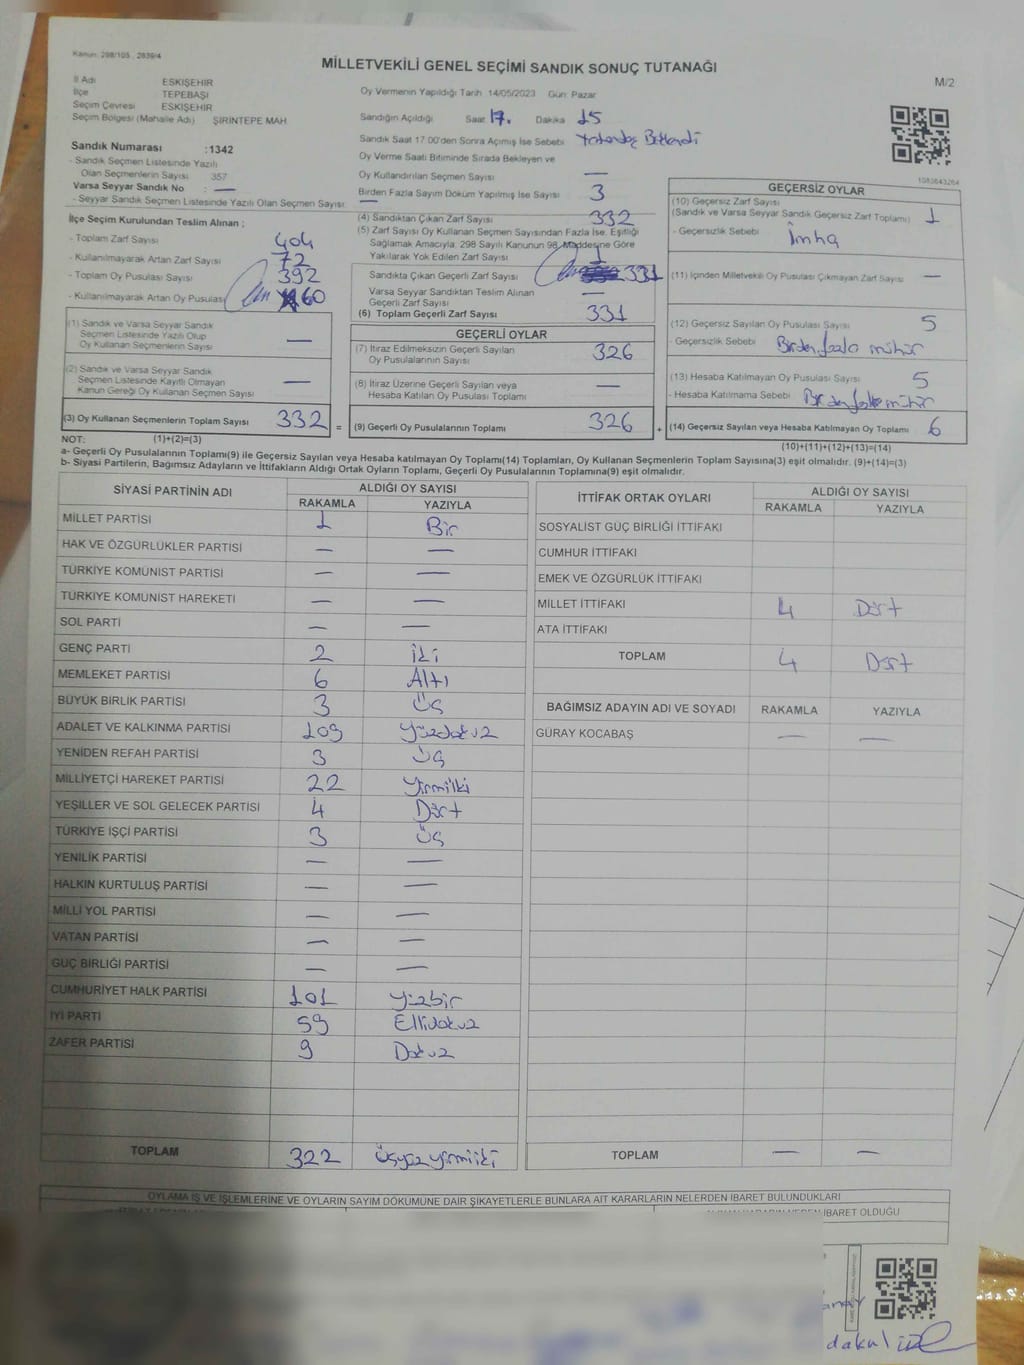 Kanun: 298/105 , 2839/4
MİLLETVEKİLİ GENEL SEÇİMİ SANDIK SONUÇ TUTANAĞI
M/2
İl Adı ESKİŞEHİR
İlçe TEPEBAŞI
Seçim Çevresi ESKİŞEHİR
Seçim Bölgesi (Mahalle Adı) ŞİRİNTEPE MAH.
Sandık Numarası :1342
- Sandık Seçmen Listesinde Yazılı
Olan Seçmenlerin Sayısı 357
Varsa Seyyar Sandık No : —
- Seyyar Sandık Seçmen Listesinde Yazılı Olan Seçmen Sayısı: —
Oy Vermenin Yapıldığı Tarih 14/05/2023 Gün: Pazar
Sandığın Açıldığı Saat 17. Dakika 15
Sandık Saat 17:00'den Sonra Açımış İse Sebebi
Oy Verme Saati Bitiminde Sırada Bekleyen ve
Oy Kullandırılan Seçmen Sayısı —
Birden Fazla Sayım Döküm Yapılmış İse Sayısı 3
1083643264
İlçe Seçim Kurulundan Teslim Alınan ;
- Toplam Zarf Sayısı 404
- Kullanılmayarak Artan Zarf Sayısı 72
- Toplam Oy Pusulası Sayısı 392
- Kullanılmayarak Artan Oy Pusulası 60
(1) Sandık ve Varsa Seyyar Sandık
Seçmen Listesinde Yazılı Olup
Oy Kullanan Seçmenlerin Sayısı —
(2) Sandık ve Varsa Seyyar Sandık
Seçmen Listesinde Kayıtlı Olmayan
Kanun Gereği Oy Kullanan Seçmen Sayısı —
(3) Oy Kullanan Seçmenlerin Toplam Sayısı 332 =
(4) Sandıktan Çıkan Zarf Sayısı 332
(5) Zarf Sayısı Oy Kullanan Seçmen Sayısından Fazla İse, Eşitliği
Sağlamak Amacıyla, 298 Sayılı Kanunun 98. Maddesine Göre
Yakılarak Yok Edilen Zarf Sayısı 1
Sandıkta Çıkan Geçerli Zarf Sayısı 331
Varsa Seyyar Sandıktan Teslim Alınan
Geçerli Zarf Sayısı —
(6) Toplam Geçerli Zarf Sayısı 331
GEÇERLİ OYLAR
(7) İtiraz Edilmeksizin Geçerli Sayılan
Oy Pusulalarının Sayısı 326
(8) İtiraz Üzerine Geçerli Sayılan veya
Hesaba Katılan Oy Pusulaları Toplamı —
(9) Geçerli Oy Pusulalarının Toplamı 326 +
GEÇERSİZ OYLAR
(10) Geçersiz Zarf Sayısı
(Sandık ve Varsa Seyyar Sandık Geçersiz Zarf Toplamı) 1
- Geçersizlik Sebebi İmha
(11) İçinden Milletvekili Oy Pusulası Çıkmayan Zarf Sayısı —
(12) Geçersiz Sayılan Oy Pusulası Sayısı 5
- Geçersizlik Sebebi Birden fazla mühür
(13) Hesaba Katılmayan Oy Pusulası Sayısı 5
- Hesaba Katılmama Sebebi Birden fazla mühür
(14) Geçersiz Sayılan veya Hesaba Katılmayan Oy Toplamı 6
NOT: (1)+(2)=(3) (10)+(11)+(12)+(13)=(14)
a- Geçerli Oy Pusulalarının Toplamı(9) ile Geçersiz Sayılan veya Hesaba katılmayan Oy Toplamı(14) Toplamları, Oy Kullanan Seçmenlerin Toplam Sayısına(3) eşit olmalıdır. (9)+(14)=(3)
b- Siyasi Partilerin, Bağımsız Adayların ve İttifakların Aldığı Ortak Oyların Toplamı, Geçerli Oy Pusulalarının Toplamına(9) eşit olmalıdır.
SİYASİ PARTİNİN ADI ALDIĞI OY SAYISI
RAKAMLA YAZIYLA
MİLLET PARTİSİ 1 Bir
HAK VE ÖZGÜRLÜKLER PARTİSİ — —
TÜRKİYE KOMÜNİST PARTİSİ — —
TÜRKİYE KOMÜNİST HAREKETİ — —
SOL PARTİ — —
GENÇ PARTİ 2 İki
MEMLEKET PARTİSİ 6 Altı
BÜYÜK BİRLİK PARTİSİ 3 Üç
ADALET VE KALKINMA PARTİSİ 109 Yüzdokuz
YENİDEN REFAH PARTİSİ 3 Üç
MİLLİYETÇİ HAREKET PARTİSİ 22 Yirmiiki
YEŞİLLER VE SOL GELECEK PARTİSİ 4 Dört
TÜRKİYE İŞÇİ PARTİSİ 3 Üç
YENİLİK PARTİSİ — —
HALKIN KURTULUŞ PARTİSİ — —
MİLLİ YOL PARTİSİ — —
VATAN PARTİSİ — —
GÜÇ BİRLİĞİ PARTİSİ — —
CUMHURİYET HALK PARTİSİ 101 Yüzbir
İYİ PARTİ 59 Ellidokuz
ZAFER PARTİSİ 9 Dokuz
TOPLAM 322 Üçyüzyirmiiki
İTTİFAK ORTAK OYLARI ALDIĞI OY SAYISI
RAKAMLA YAZIYLA
SOSYALİST GÜÇ BİRLİĞİ İTTİFAKI
CUMHUR İTTİFAKI
EMEK VE ÖZGÜRLÜK İTTİFAKI
MİLLET İTTİFAKI 4 Dört
ATA İTTİFAKI
TOPLAM 4 Dört
BAĞIMSIZ ADAYIN ADI VE SOYADI RAKAMLA YAZIYLA
GÜRAY KOCABAŞ — —
TOPLAM — —
OYLAMA İŞ VE İŞLEMLERİNE VE OYLARIN SAYIM DÖKÜMÜNE DAİR ŞİKAYETLERLE BUNLARA AİT KARARLARIN NELERDEN İBARET BULUNDUKLARI
İBARET OLDUĞU